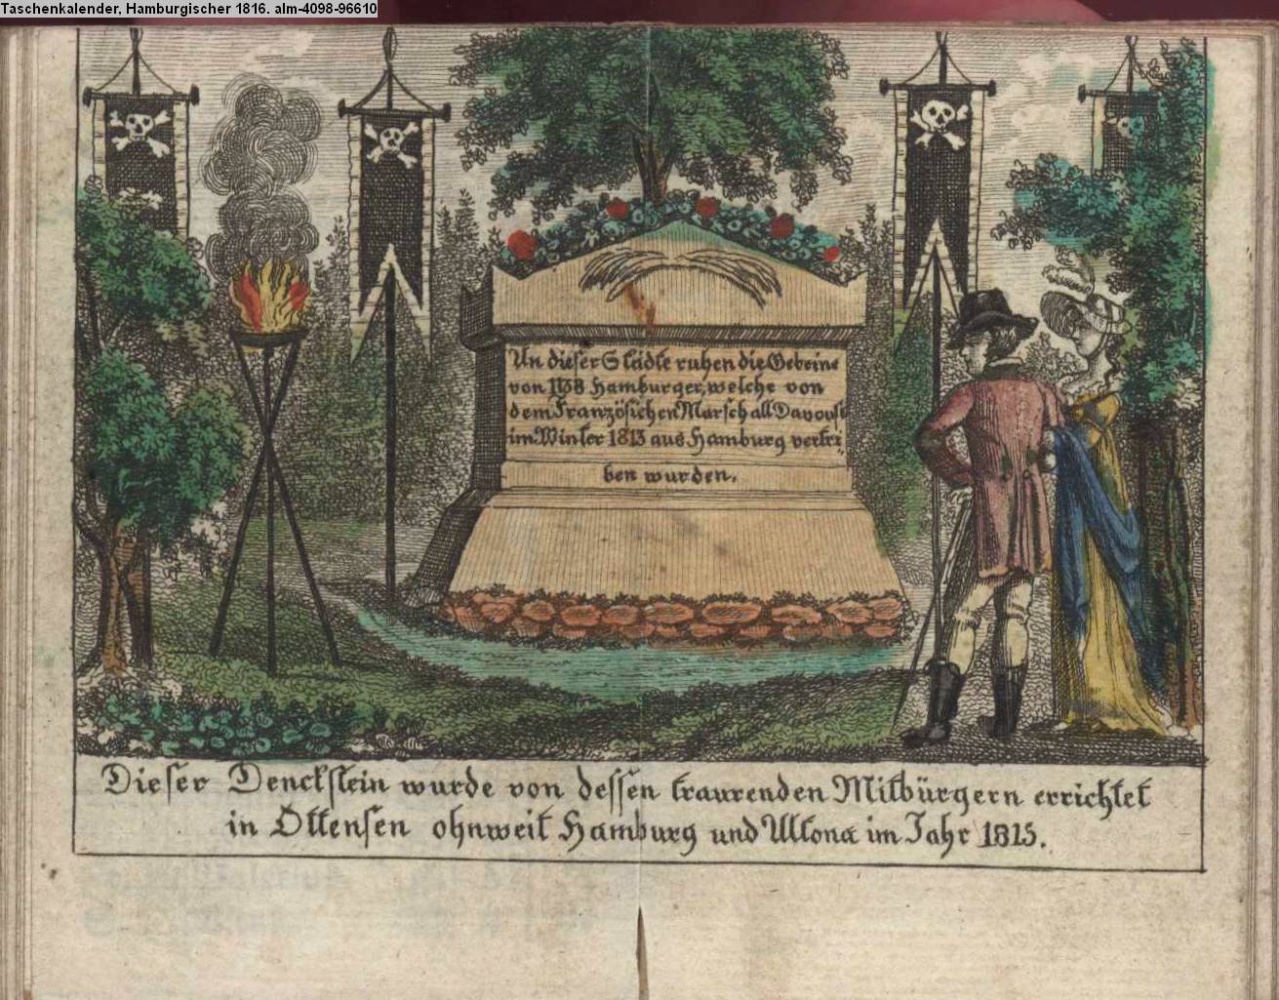 Taschenkalender, Hamburgischer 1816. alm-4098-96610
An dieser Städte ruhen die Gebeine
von 1138 Hamburger, welche von
dem Französichen Marschall Davoust
im Winter 1813 aus Hamburg vertri-
ben wurden.
Dieser Denckstein wurde von dessen traurenden Mitbürgern errichtet
in Ottensen ohnweit Hamburg und Altona im Jahr 1815.